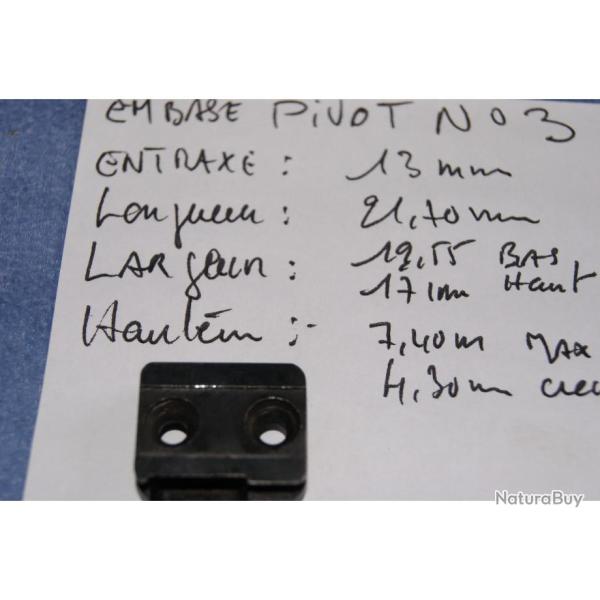 EMBASE PiVOT No 3
ENTRAXE : 13 mm
Longueur : 21,70 mm
LARgeur : 19,55 BAS
17 mm Haut
Hauteur :- 7,40 m MAX
4,30 m creu
NaturaBuy